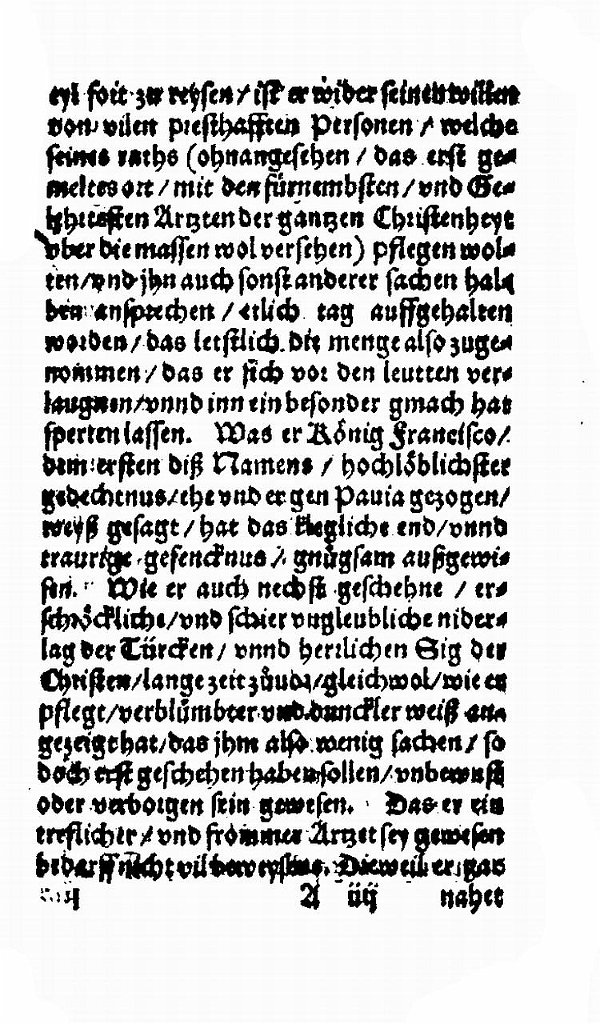 eyl fort zu reysen / ist er wider seinen willen
von vilen presthafften Personen / welche
seines raths (ohnangesehen / das erst ge-
meltes ort / mit den fürnembsten / vnd Ge-
lehrtesten Artzten der gantzen Christenheyt
vber die massen wol versehen) pflegen wol-
ten / vnd jhn auch sonst anderer sachen hal-
ben ansprechen / etlich tag auffgehalten
worden / das letstlich die menge also zuge-
nommen / das er sich vor den leutten ver-
laugnen / vnnd inn ein besonder gmach hat
sperten lassen. Was er König Francisco /
dem ersten diß Namens / hochlöblichster
gedechtnus / ehe vnd er gen Pauia gezogen /
weyß gesagt / hat das klegliche end / vnnd
traurige gefencknus / gnůgsam außgewi-
sen. Wie er auch nechst geschehne / er-
schröckliche / vnd schier vngleubliche nider-
lag der Türcken / vnnd herrlichen Sig der
Christen / lange zeit zůuor / gleichwol / wie er
pflegt / verblůmbter vnd dunckler weiß an-
gezeigt hat / das jhm also wenig sachen / so
doch erst geschehen haben sollen / vnbewust
oder verborgen sein gewesen. Das er ein
treflicher / vnd frommer Artzet sey gewesen
bedarff nicht vil beweysens. Dieweil er gar
A iiij nahet